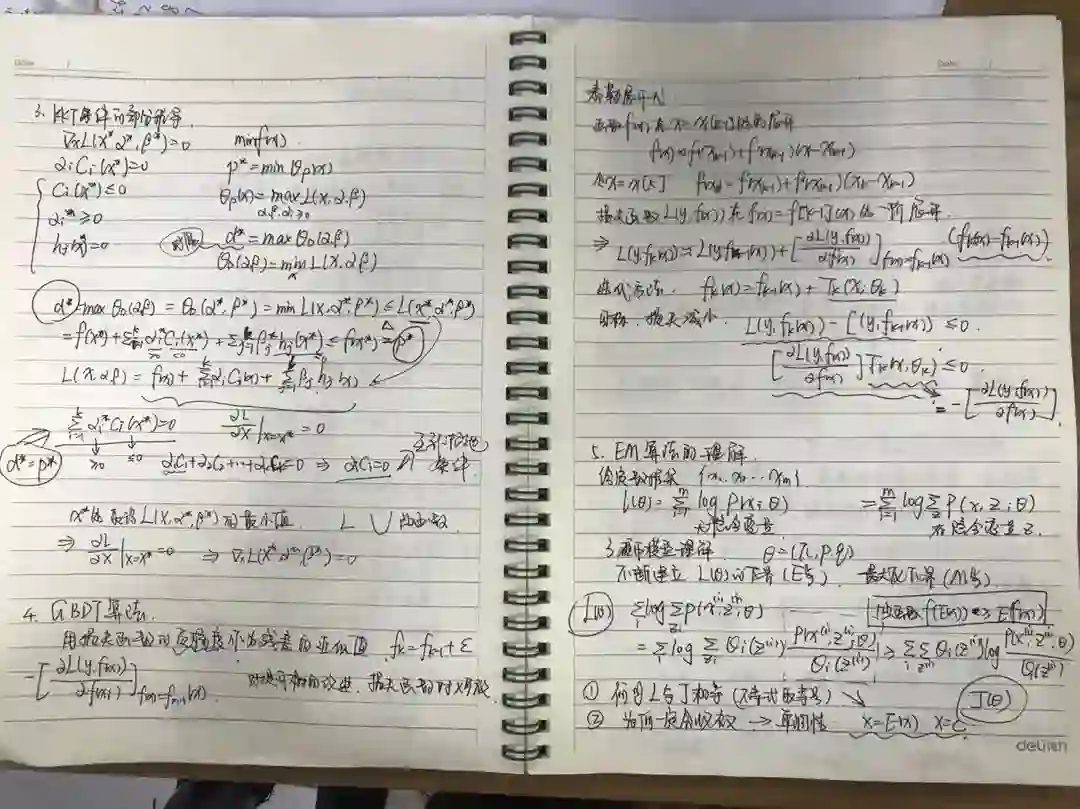 Date
3. KKT条件的部分推导
∇xL(x*, α*, β*)=0 min f(x)
αi Ci(x*)=0 p*=min θp(x)
Ci(x*)≤0 θp(x)=max L(x,α,β)
α,β,αi≥0
αi*≥0
hj(x*)=0 对偶 d*=max θD(α,β)
θD(α,β)=min L(x,α,β)
x
d*=max θD(α,β)=θD(α*,β*)=min L(x,α*,β*)≤L(x*,α*,β*)
=f(x*)+Σαi*Ci(x*)+Σβj*hj(x*)≤f(x*)=p*
L(x,α,β)=f(x)+ΣαiCi(x)+Σβjhj(x)
Σαi*Ci(x*)=0 ∂L/∂x|x=x*=0
d*=p* ≥0 ≤0 α1C1+α2C2+…+αkCk=0 ⇒ αiCi=0 互补松弛条件
x*使取得L(x,α*,β*)的最小值 L 凸函数
⇒ ∂L/∂x|x=x*=0 ⇒ ∇xL(x*,α*,β*)=0
4. GBDT算法
用损失函数的负梯度作为残差的近似值 fk=fk-1+ε
-[∂L(y,f(x))/∂f(x)]f(x)=fk-1(x) 损失函数
Date
泰勒展开
函数f(x)在x=处的展开
f(x)=f(xk-1)+f'(xk-1)(x-xk-1)
令x=x[k] f(xk)=f(xk-1)+f'(xk-1)(xk-xk-1)
损失函数L(y,f(x))在f(x)=f[k-1](x)的一阶展开
⇒ L(y,fk(x))=L(y,fk-1(x))+[∂L(y,f(x))/∂f(x)]f(x)=fk-1(x) (fk(x)-fk-1(x))
迭代方法. fk(x)=fk-1(x)+Tk(x;θk)
目标. 损失减小. L(y,fk(x))-L(y,fk-1(x))≤0.
[∂L(y,f(x))/∂f(x)]Tk(x,θk)≤0.
=-[∂L(y,f(x))/∂f(x)]
5. EM算法的理解
给定数据集 {x1,x2…xm}
l(θ)=Σlog p(x;θ) =ΣlogΣp(x,z;θ)
i=1 m 无隐含变量 有隐含变量z.
3硬币模型理解 θ=(π,p,q)
不断建立L(θ)的下界(E步). 最大化下界(M步)
L(θ) ΣlogΣp(x(i),z(i);θ) f(E(x))≥E f(x)
=ΣlogΣQi(z(i)) p(x(i),z(i);θ)/Qi(z(i)) ≥ΣΣQi(z(i))log p(x(i),z(i);θ)/Qi(z(i))
① 何时L与J相等(不等式取等号) J(θ)
② 为何一定会收敛 → 单调性 x=E(x) x=C
deli